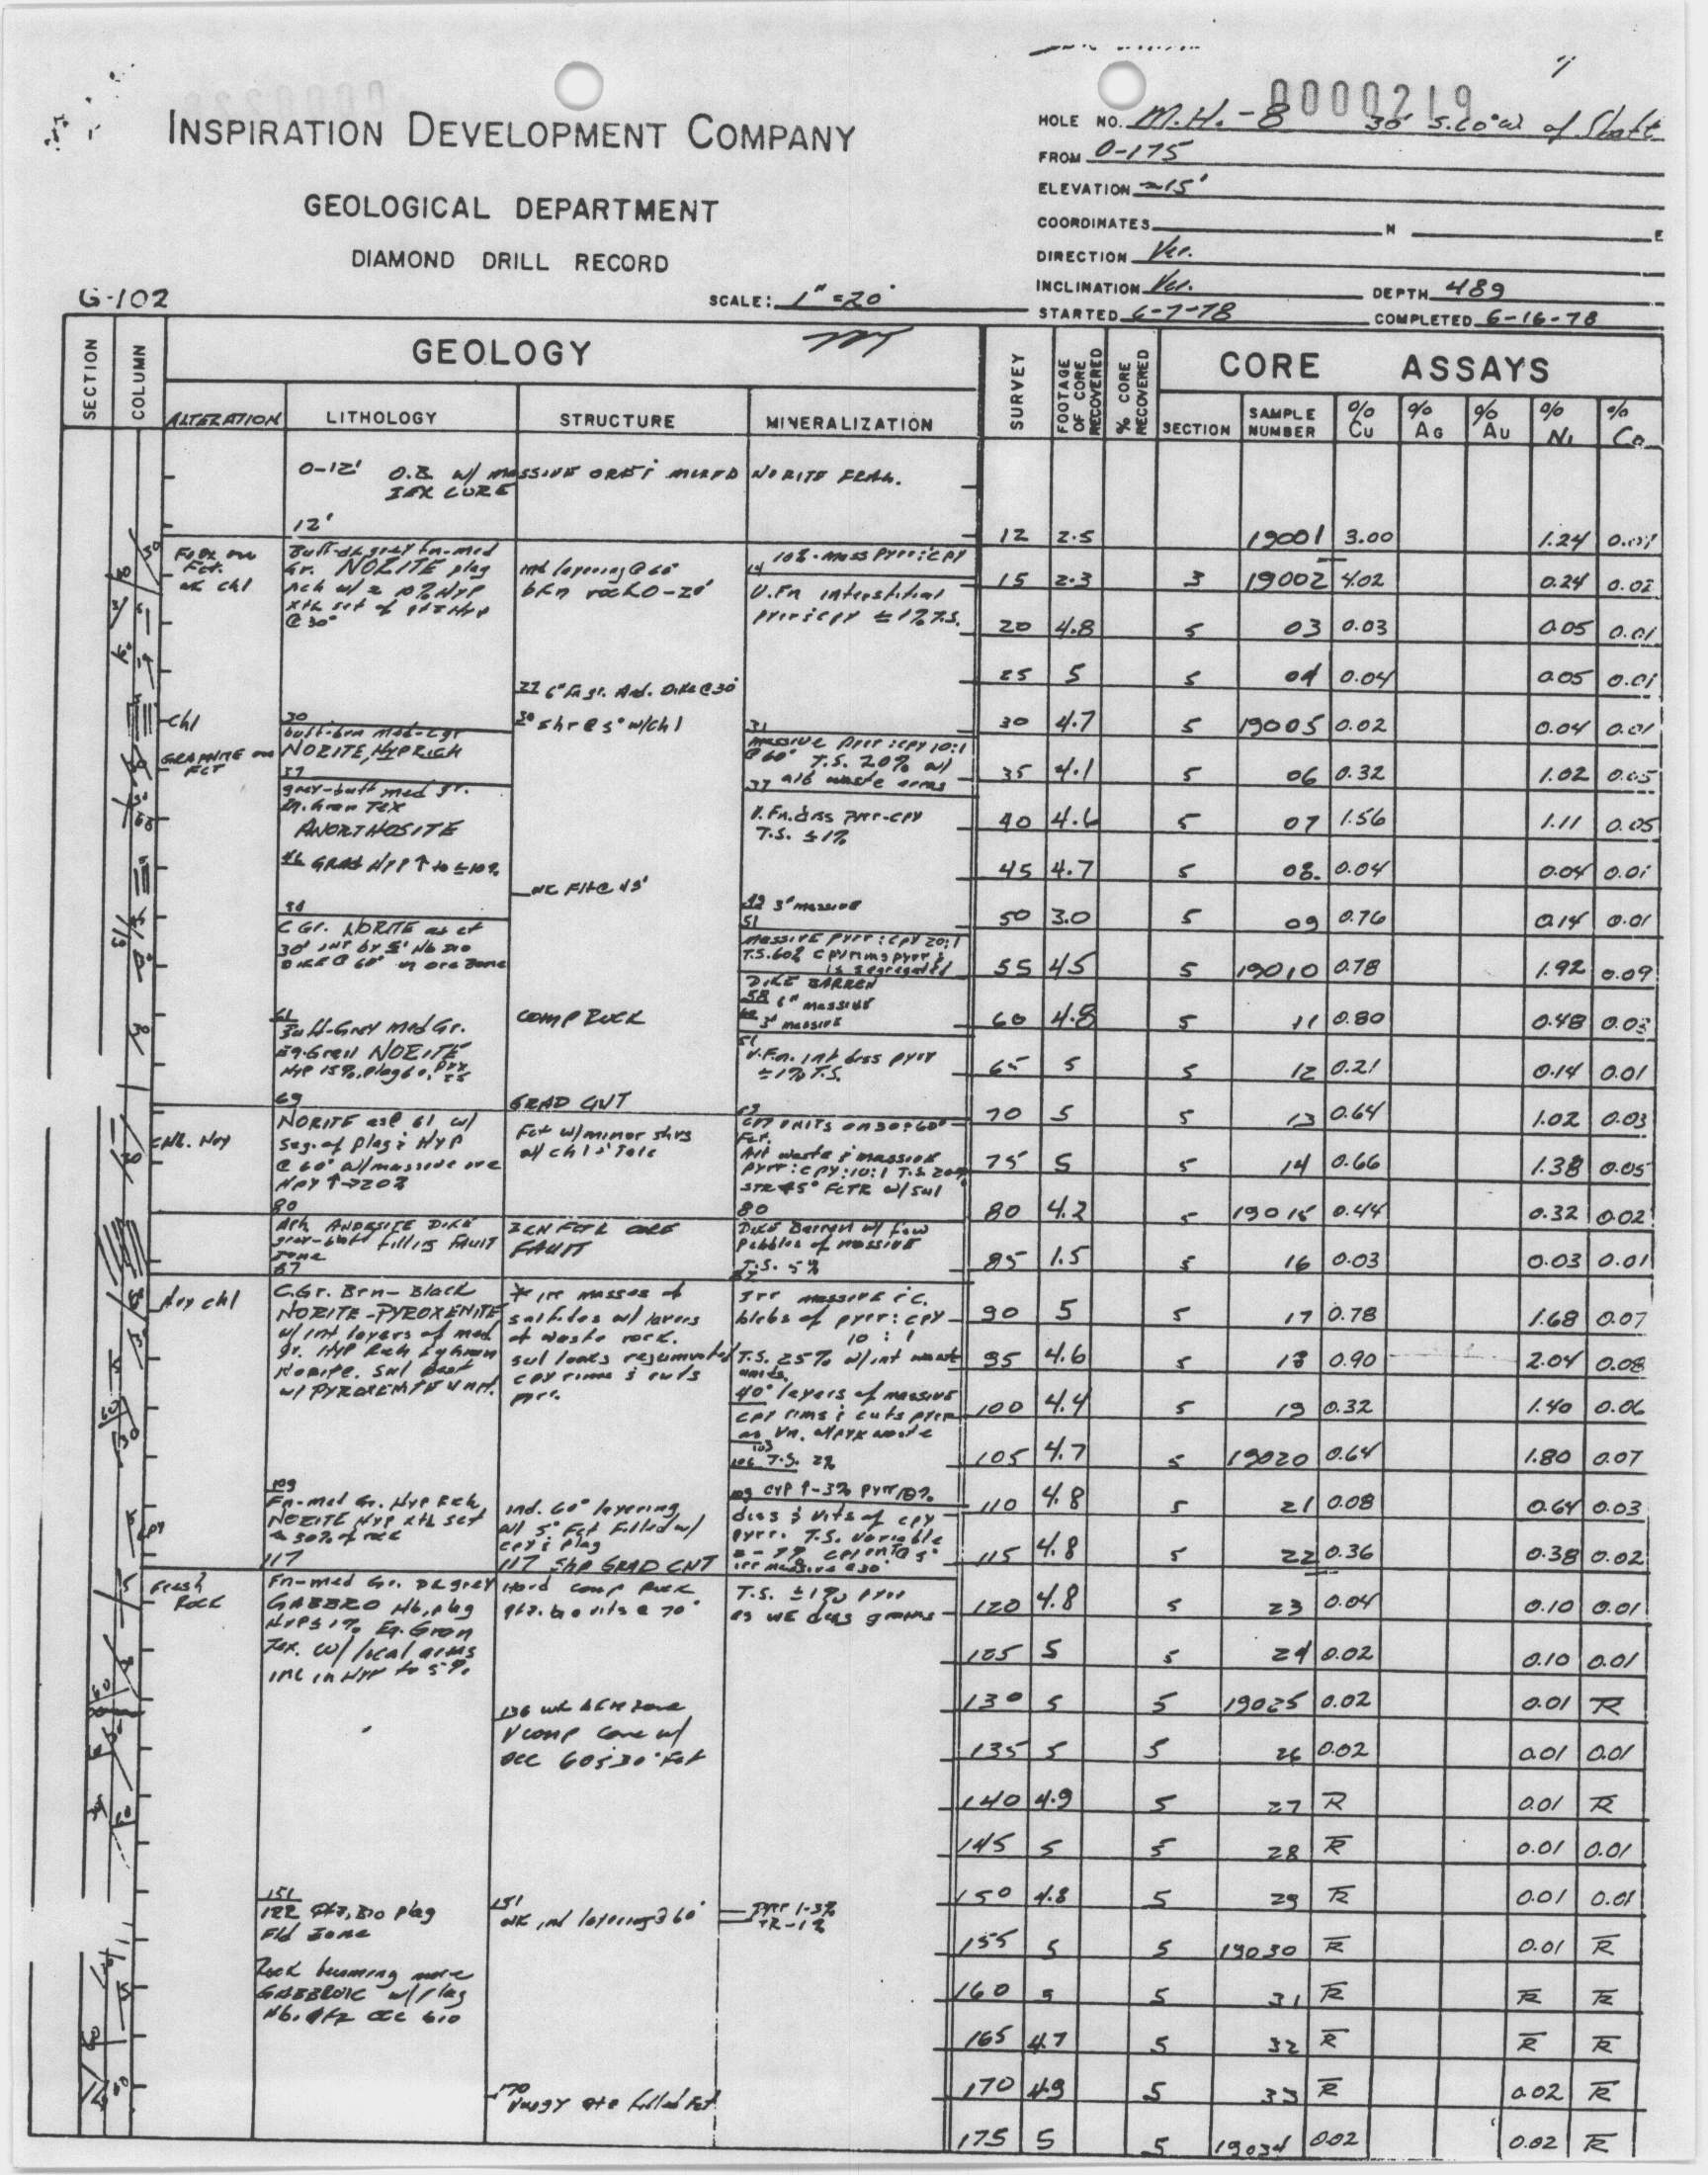 0000219
INSPIRATION DEVELOPMENT COMPANY
GEOLOGICAL DEPARTMENT
DIAMOND DRILL RECORD
G-102
SCALE: 1"=20'
HOLE NO. M.H.-8 30' S.60°W of Shaft
FROM 0-175
ELEVATION ≈15'
COORDINATES N E
DIRECTION Ver.
INCLINATION Ver. DEPTH 489
STARTED 6-7-78 COMPLETED 6-16-78
SECTION COLUMN GEOLOGY SURVEY FOOTAGE OF CORE RECOVERED % CORE RECOVERED CORE ASSAYS
ALTERATION LITHOLOGY STRUCTURE MINERALIZATION SECTION SAMPLE NUMBER % Cu % Ag % Au % Ni % Co
0-12' O.B. w/ MASSIVE ORE NORITE FRAG.
CORE
12'
12 2.5 19001 3.00 1.24
wk chl
Gr. NORITE plag
@ 30°
ind layering @ 60°
bkn rock 0-20'
10% mass pyrr:cpy
14
V.Fn interstitial
pyrr:cpy ≤1% T.S.
15 2.3 3 19002 4.02 0.24 0.02
20 4.8 5 03 0.03 0.05 0.01
25 5 5 04 0.04 0.05 0.01
Chl
30
buff-brn med-cgr
NORITE, HYP RICH
37
grey-buff med gr.
ANORTHOSITE
46 GRAD HYP ↑ to ≤10%
22 6" Fn gr. And. Dike @ 30°
30 shr @ 5° w/chl
wk Flt @ 45'
31
massive pyrr:cpy 10:1
@ 60° T.S. 20% w/
37 alt waste areas
V.Fn. diss pyrr-cpy
T.S. ≤1%
30 4.7 5 19005 0.02 0.04 0.01
35 4.1 5 06 0.32 1.02 0.05
40 4.6 5 07 1.56 1.11 0.05
45 4.7 5 08 0.04 0.04 0.01
C Gr. NORITE as at
30' int by 5" Hb Dio
DIKE @ 60° in ore zone
49 3" massive
51
massive pyrr:cpy 20:1
T.S. 60% cpy rims pyrr &
is segregated
DIKE BARREN
58 6" massive
60 3" massive
50 3.0 5 09 0.76 0.14 0.01
55 4.5 5 19010 0.78 1.92 0.09
60 4.8 5 11 0.80 0.48 0.03
61
Buff-Grey med Gr.
Eq. Gran NORITE
COMP ROCK
GRAD CNT
61
V.Fn. int diss pyrr
≤1% T.S.
65 5 5 12 0.21 0.14 0.01
Chl. Hvy
69
NORITE as @ 61 w/
seg. of plag & HYP
@ 60° w/massive ore
HPY ↑→20%
80
Fct w/minor shrs
w/ chl & Talc
69
Alt waste & massive
pyrr:cpy:10:1 T.S. 20%
80
70 5 5 13 0.64 1.02 0.03
75 5 5 14 0.66 1.38 0.05
80 4.2 5 19015 0.44 0.32 0.02
Aph ANDESITE DIKE
grey-buff filling FAULT
ZONE
87
BKN FCTR CORE
FAULT
DIKE Barren w/ few
Pebbles of massive
T.S. 5%
87
85 1.5 5 16 0.03 0.03 0.01
Hvy chl
C.Gr. Brn-Black
NORITE-PYROXENITE
w/ int layers of med
gr. HYP Rich Eq Gran
Norite. Sul best
w/ PYROXENITE Unit.
* irr masses of
sulfides w/ layers
of waste rock.
sul looks rejuvinated
cpy rims & cuts
pyrr.
Irr MASSIVE & C.
blebs of pyrr:cpy
10:1
T.S. 25% w/int waste
units.
40° layers of massive
cpy rims & cuts pyrr
as Vn. w/pyx waste
103
106 T.S. 2%
90 5 5 17 0.78 1.68 0.07
95 4.6 5 18 0.90 2.04 0.08
100 4.4 5 19 0.32 1.40 0.06
105 4.7 5 19020 0.64 1.80 0.07
109
Fn-med Gr. Hyp Rch
NORITE Hyp xtls set
@ 30%
117
ind. 60° layering
w/ 5° Fct filled w/
cpy & plag
117 Shp GRAD CNT
109 cyp ↑-3% pyrr 10%
diss & vits of cpy
pyrr. T.S. variable
110 4.8 5 21 0.08 0.64 0.03
115 4.8 5 22 0.36 0.38 0.02
Fresh
Rock
Fn-med Gr. Dk grey
GABBRO Hb, plag
HYP ≤1% Eq. Gran
Tex. w/ local areas
inc in HYP to 5%
Hard comp Rock
qtz. bio vits @ 70°
T.S. ≤1% pyrr
as wk diss grains
136 wk BKN zone
V comp Core w/
occ 60 & 30° Fct
120 4.8 5 23 0.04 0.10 0.01
125 5 5 24 0.02 0.10 0.01
130 5 5 19025 0.02 0.01 TR
135 5 5 26 0.02 0.01 0.01
140 4.9 5 27 TR 0.01 TR
145 5 5 28 TR 0.01 0.01
151
IRR Qtz, Bio plag
Fld Zone
Rock becoming more
GABBROIC w/plag
Hb. Qtz occ bio
151
wk ind layering @ 60°
pyrr 1-3%
TR-1%
170
Vuggy qtz filled Fct
150 4.8 5 29 TR 0.01 0.01
155 5 5 19030 TR 0.01 TR
160 5 5 31 TR TR TR
165 4.7 5 32 TR TR TR
170 4.9 5 33 TR 0.02 TR
175 5 5 19034 0.02 0.02 TR